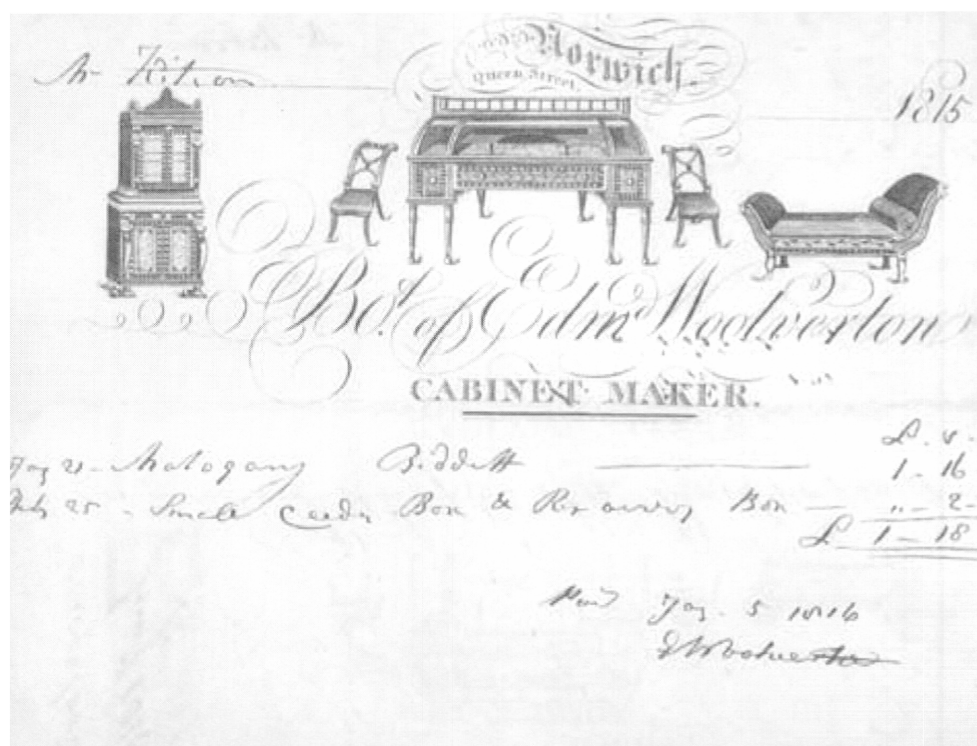 Norwich.
Queen Street
Mr Kitson
1815
Bot. of Edmd Woolverton
CABINET MAKER.
£ . s .
Jay 21 - Mahogany Biddett 1 - 16
25 - Small Ceedr Box & Box — " - 2 -
£ 1 - 18
Paid Jay. 5 1816
E Woolverton